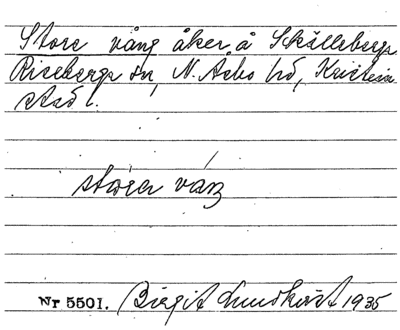 Store vång åker å Skälleberga
Riseberga sn, N. Åsbo hd, Kristian
stads l.
storer våŋ
Nr 5501. Birgit Lundkvist 1935